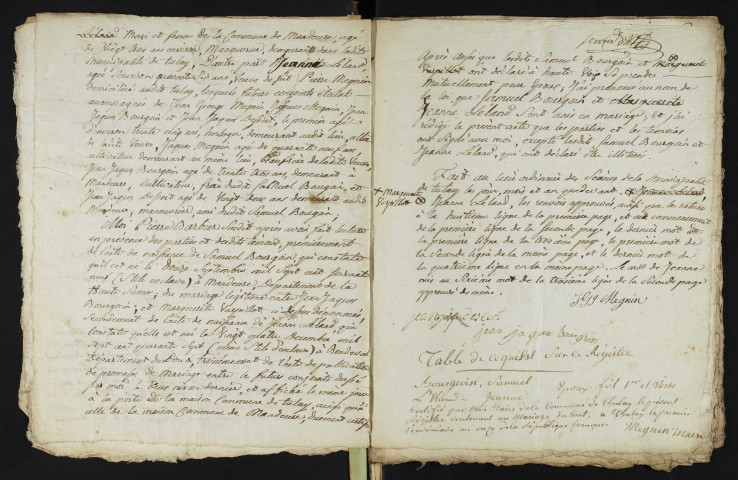 Lelard Mari et femme de la Commune de Mandeure; agé
de Vingt trois ans environ, Manœuvrier, demeurant dans ladite
municipalité de tulay, L'autre part Jeanne Lelard
agée d'environ quarante six ans Veuve de feû Pierre Megnin
domiciliée audit tulay, lesquels futurs conjoints étoient
accompagnés de Jean George Megnin, Jacques Megnin, Jean
Jaques Bourgoin et Jean Jaques Besfort, le premier agé
d'environ trente cinq ans, horloger, demeurant audit lieu, allié
de ladite Veuve, Jaques Megnin agé de quarante neuf ans,
cultivateur demeurant au même lieu, beaufrère de ladite Veuve,
Jean Jaques Bourgoin agé de trente trois ans, demeurant à
Mandeure, Cultivateur, frère dudit Samuel Bourgoin, et
Jean Jaques Besfort agé de Vingt deux ans demeurant audit
Mandeure, manœuvrier, ami dudit Samuel Bourgoin;
Moi Pierre Barbier Susdit après avoir fait lecture
en présence des parties et desdits temoins, premièrement
de l'acte de naissance de Samuel Bourgoin qui constate
qu'il est né le douze Septembre mil Sept cent soixante
neuf (Stile esclave) à Mandeure Departement de la
Haute Saone, du mariage légitime entre Jean Jaques
Bourgoin; et Marguerite Vuypillot ci dessus denommés,
Secondement de l'acte de naissance de Jeanne Lelard, qui
constate quelle est née le Vingt quatre decembre mil
Sept cent quarante Sept (même Stile d'esclave) à Bondeval
Département du Doubs, troisièmement de l'acte de publication
de promesse de Mariage entre les futurs conjoints dressé
par moi le deux nivose dernier, et affiché le même jour
à la porte de la maison Commune de tulay, ainsi qu'à
celle de la maison Commune de Mandeure, dument certifié
Après aussi que lesdits Samuel Bourgoin et
Vuypillot ont déclaré à haute Voix Se prendre
Mutuellement pour Epoux, J'ai prononcé au nom de
la loi, que Samuel Bourgoin et
Jeanne Lelard Sont unis en mariage, et j'ai
rédigé le présent acte que les parties et les temoins
ont Signé avec moi, excepté lesdits Samuel Bourgoin et
Jeanne Lelard, qui ont declaré être illétrés.
Fait au lieu ordinaire des Seances de la Municipalité
de tulay les jour, mois et an que devant.
+ Marguerite
Vuypillot
Jeanne Lelard, les renvois approuvés, ainsi que les ratures
à la huitieme ligne de la première page, et au commencement
de la premiere ligne de la Seconde page, le dernier mot de
la premiere ligne de la troisième page, le premier mot de
la Seconde ligne de la même page, et le dernier mot de
la quatrième ligne en la même page. Le mot de Jeanne
mis au Sixième mot de la troisième ligne de la Seconde page
approuvé de même.
J G J Megnin
jean jaque bourgoin
Table de ce qui est Sur ce Régistre
Bourgoin, Samuel
L'Elard - Jeanne
fol. 1er et Verso
Certifié par moi Maire de la Commune de Thulay le présent
Régistre contenant un Mariage du tout, a Thulay le premier
Vendémiaire an onze de la République françoise
Megnin Maire